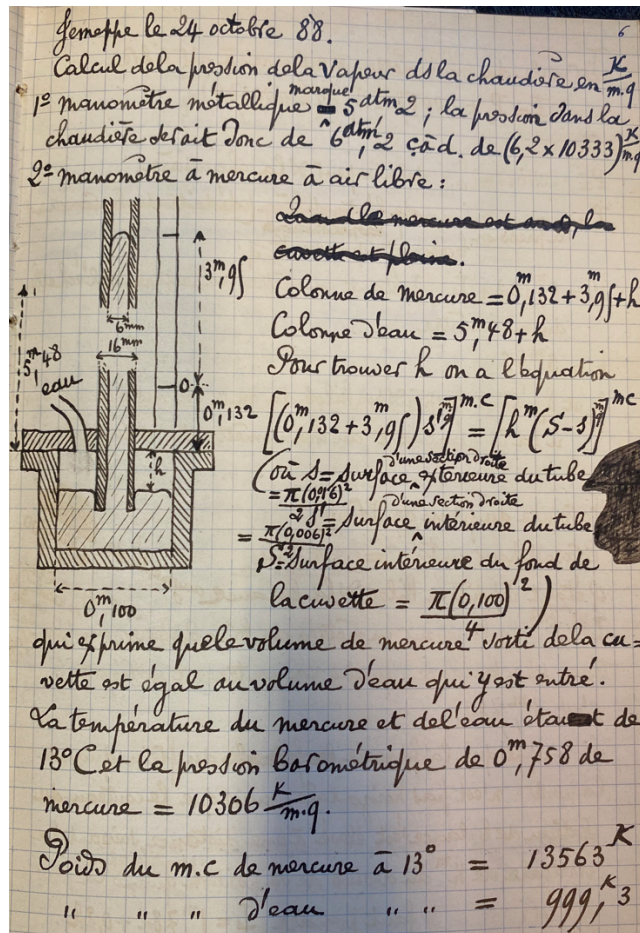 6
Jemeppe le 24 octobre 88.
Calcul dela pression dela Vapeur ds la chaudière en K/m.q
1º manomètre métallique marque 5atm,2 ; la pression dans la
chaudière serait donc de 6atm,2 çàd. de (6,2 x 10333) K/m.q
2º manomètre à mercure à air libre :
Quand le mercure est au 0, la
cuvette est pleine.
Colonne de mercure = 0m,132 + 3m,95 + h
Colonne d'eau = 5m,48 + h
Pour trouver h on a l'équation
[(0m,132 + 3m,95) s' m.q] m.c = [h m (S-s) m.q] mc
(où s = surface d'une section droite extérieure du tube
= π(0,016)²/2
s' = surface d'une section droite intérieure du tube
= π(0,006)²/2
S = Surface intérieure du fond de
la cuvette = π(0,100)²/4)
qui exprime quele volume de mercure sorti dela cu=
vette est égal au volume d'eau qui y est entré.
La température du mercure et del'eau étant de
13°C et la pression barométrique de 0m,758 de
mercure = 10306 K/m.q.
Poids du m.c de mercure à 13° = 13563K
" " " d'eau " " = 999,K3
13m,95
6mm
16mm
5m,48
eau
0
0m,132
h
0m,100